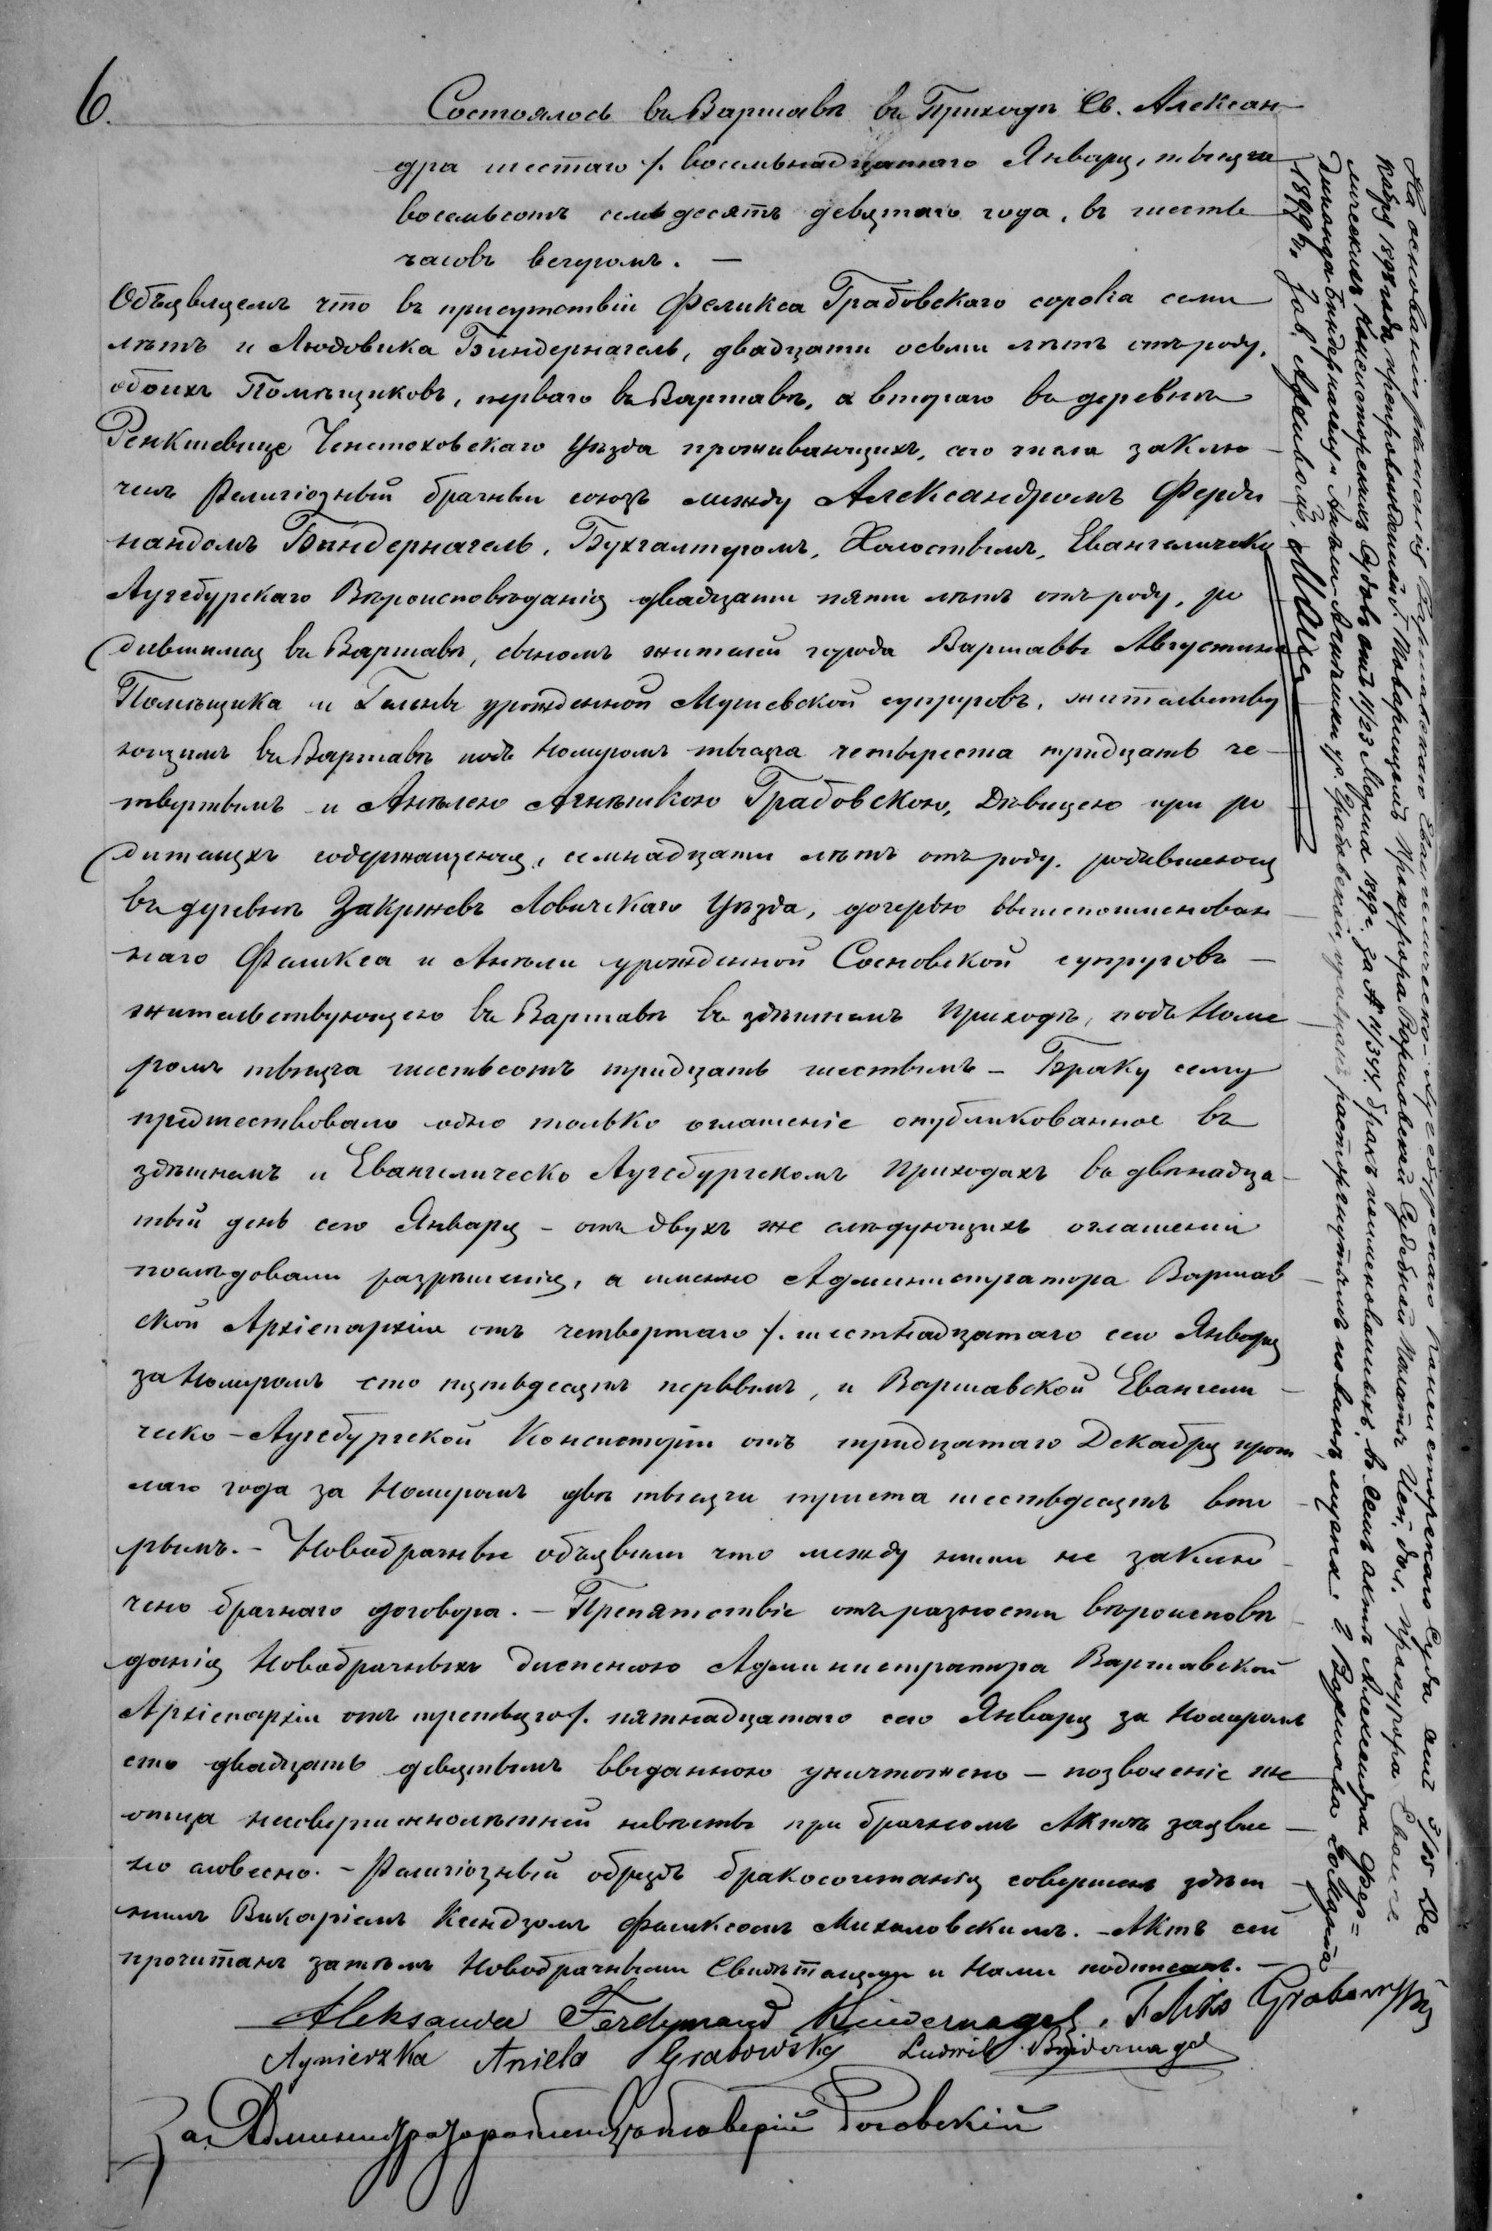 6.
Состоялось въ Варшавѣ въ Приходѣ Св. Алексан-
дра шестаго /. восемьнадцатаго Января, тысяча
восемьсотъ семьдесятъ девятаго года, въ шесть
часовъ вечеромъ. —
Объявляемъ что въ присутствіи Феликса Грабовскаго сорока семи
лѣтъ и Людовика Биндернагель, двадцати осьми лѣтъ отъ роду,
обоихъ Помѣщиковъ, перваго въ Варшавѣ, а втораго въ деревнѣ
Ренкшевице Ченстоховскаго Уѣзда проживающихъ, сего числа заклю-
ченъ Религіозный брачный союзъ между Александромъ Ферди
нандомъ Биндернагель, Бухгалтеромъ, Холостымъ, Евангеличско
Аугсбурскаго Вѣроисповѣданія двадцати пяти лѣтъ отъ роду, ро
дившимся въ Варшавѣ, сыномъ жителей города Варшавы Августина
Помѣщика и Галены урожденной Мушевской супруговъ, жительству
ющимъ въ Варшавѣ подъ Номеромъ тысяча четыреста тридцать че-
твертымъ и Анѣлею Агнѣшкою Грабовскою, Дѣвицею при ро
дителяхъ содержащеюся, семнадцати лѣтъ отъ роду, родившеюся
въ деревнѣ Закржевъ Ловичскаго Уѣзда, дочерью вышепоименован-
наго Феликса и Анѣли урожденной Сосновской супруговъ —
жительствующею въ Варшавѣ въ здѣшнемъ Приходѣ, подъ Номе-
ромъ тысяча шестьсотъ тридцать шестымъ — Браку сему
предшествовало одно только оглашеніе опубликованное въ
здѣшнемъ и Евангелическо Аугсбургскомъ Приходахъ въ двѣнадца-
тый день сего Января — отъ двухъ же слѣдующихъ оглашеній
послѣдовали разрѣшенія, а именно Администратора Варшав-
ской Архіепархіи отъ четвертаго /. шестнадцатаго сего Января
за Номеромъ сто пятьдесятъ первымъ, и Варшавской Евангели-
ческо-Аугсбургской Консисторіи отъ тридцатаго Декабря прош
лаго года за Номеромъ двѣ тысячи триста шестьдесятъ вто-
рымъ. — Новобрачные объявили что между ними не заклю-
чено брачнаго договора. — Препятствіе отъ разности вѣроисповѣ-
данія Новобрачныхъ диспенсою Администратора Варшавской
Архіепархіи отъ третьяго /. пятнадцатаго сего Января за Номеромъ
сто двадцать девятымъ выданною уничтожено — позволеніе же
отца несовершеннолѣтней невѣсты при брачномъ Актѣ заявле-
но словесно. — Религіозный обрядъ бракосочетанія совершенъ здѣш
нимъ Викаріемъ Ксендзомъ Феликсомъ Михаловскимъ. — Актъ сей
прочитанъ затѣмъ Новобрачными Свидѣтелями и Нами подписанъ. —
Aleksander Ferdynand Bindernagel. Feliks Grabowski
Agnieszka Aniela Grabowska Ludwik Bindernagel
За Администратора Роговскій
На основаніи рѣшенія Варшавскаго Евангелическо-Аугсбургскаго Консисторскаго Суда отъ 3/15 Де
кабря 1898 года, препровожденнаго Товарищемъ Прокурора Варшавской Судебной Палаты, Исп. дол. Прокурора Еванге
лическимъ Консисторскимъ Судомъ отъ 11/23 Марта 1899 г. за № 11/344, бракъ поименованныхъ въ семъ актѣ Александра Фер=
динанда Биндернагель и Анѣли-Агнѣшки ур. Грабовской, признанъ расторгнутымъ по винѣ мужа. Г. Варшава
1899 г. Зав. Архивомъ,